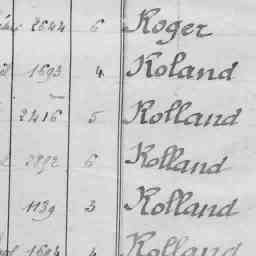 2644 6 Roger
1693 4 Roland
2416 5 Rolland
2892 6 Rolland
1139 3 Rolland
1694 4 Rolland